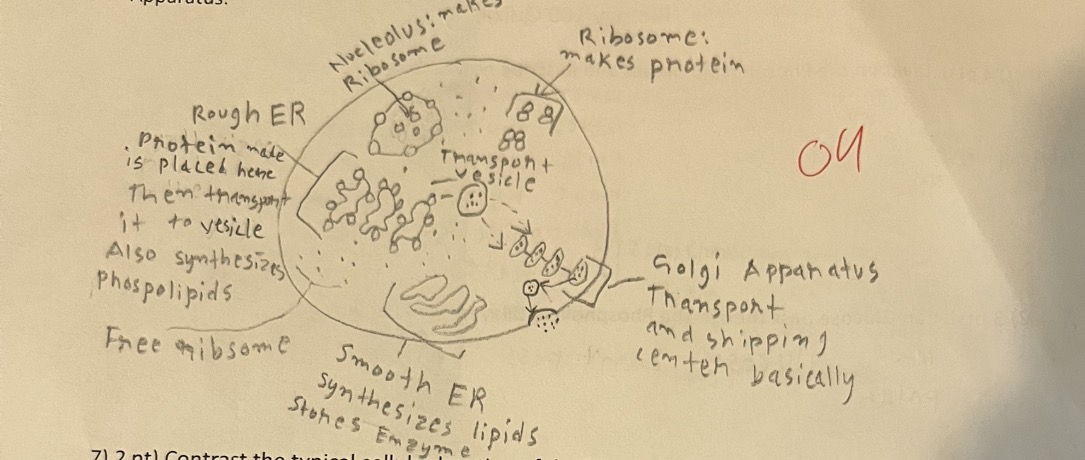 Apparatus.
Nucleolus: makes
Ribosome
Ribosome:
makes protein
Rough ER
. Protein made
is placed here
Then transport
it to vesicle
Also synthesizes
phospolipids
Transport
vesicle
04
Golgi Apparatus
Transport
and shipping
center basically
Free ribsome
Smooth ER
synthesizes lipids
stores Enzyme
7) 2 pt) Contrast the typical